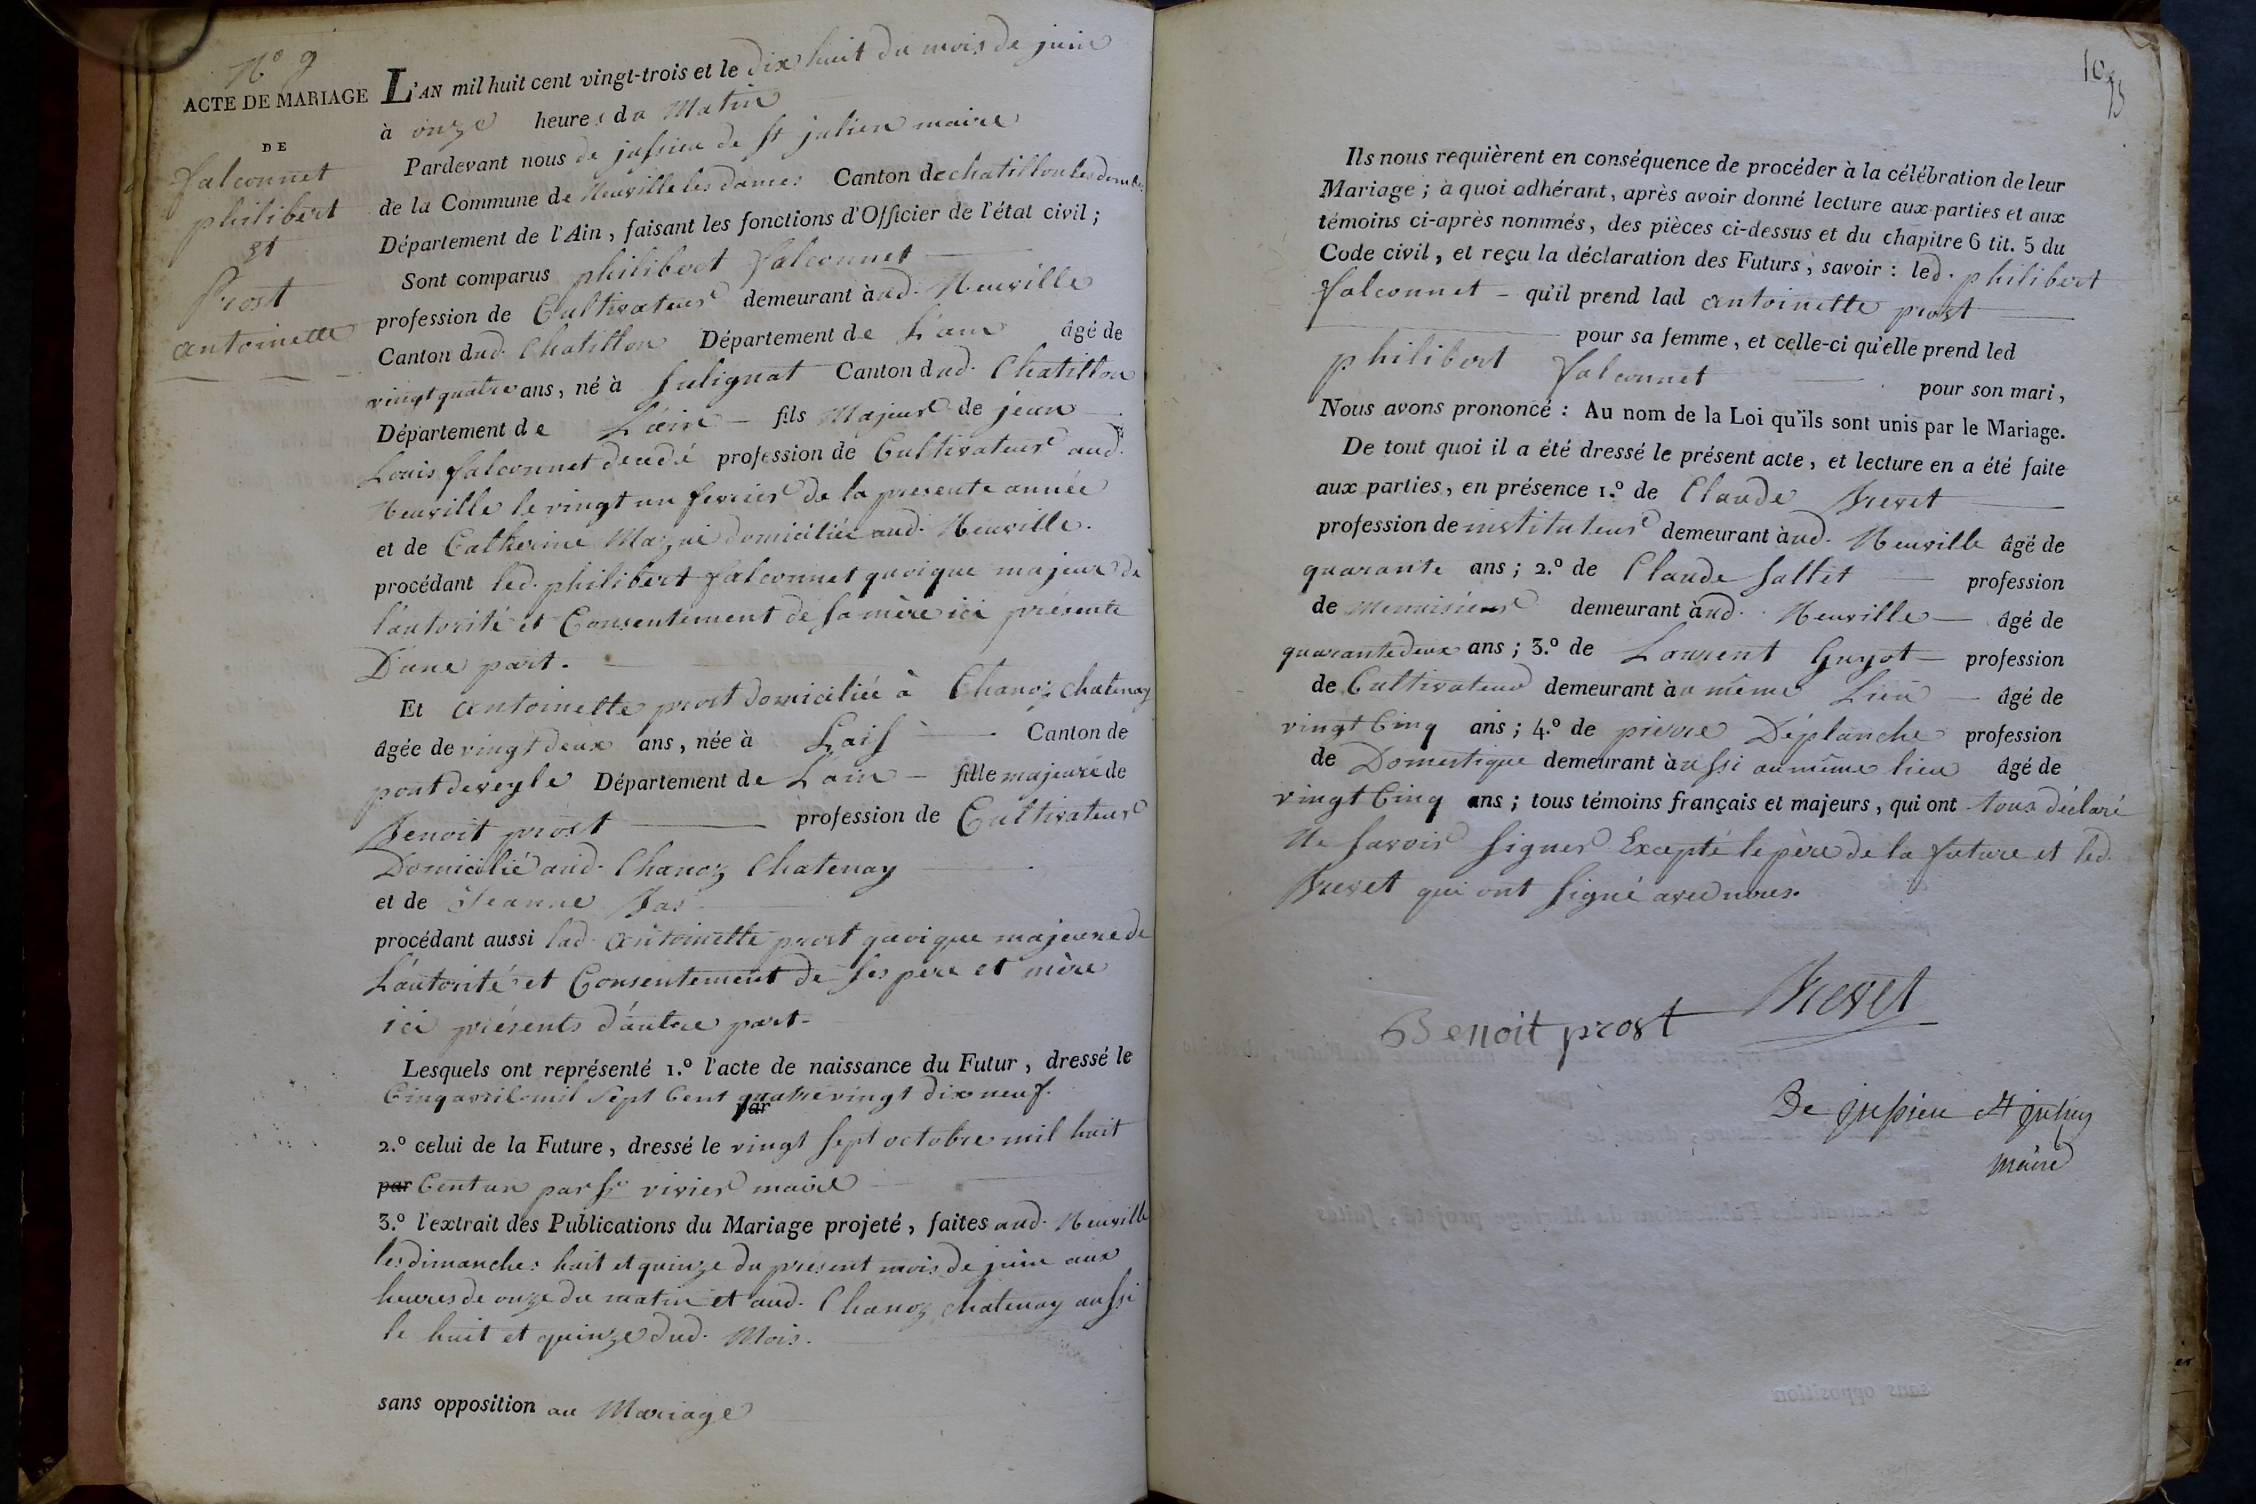 N° 9
ACTE DE MARIAGE
DE
falconnet
philibert
et
Prost
antoinette
L'AN mil huit cent vingt-trois et le dix huit du mois de juin
à onze heures du Matin
Pardevant nous de jussieu de St julien maire
de la Commune de Neuville les dames Canton de chatillon les dombes
Département de l'Ain, faisant les fonctions d'Officier de l'état civil;
Sont comparus philibert falconnet
profession de Cultivateur demeurant aud. Neuville
Canton dud. Chatillon Département de L'ain âgé de
vingt quatre ans, né à Sulignat Canton dud. Chatillon
Département de L'ain fils Majeur de jean
Louis falconnet décédé profession de Cultivateur aud.
Neuville le vingt un fevrier de la presente année
et de Catherine Mazué domiciliée aud. Neuville.
procédant led. philibert falconnet quoique majeur de
l'autorité et Consentement de sa mère ici présente
D'une part.
Et antoinette prost domiciliée à Chanoz chatenay
âgée de vingt deux ans, née à Laiss Canton de
pontdeveyle Département de L'ain fille majeure de
Benoit prost profession de Cultivateur
Domicilié aud. Chanoz Chatenay
et de Jeanne Bas
procédant aussi lad. antoinette prost quoique majeure de
L'autorité et Consentement de ses père et mère
ici présents d'autre part.
Lesquels ont représenté 1.° l'acte de naissance du Futur, dressé le
Cinq avril mil Sept Cent quatrevingt dix neuf.
par
2.° celui de la Future, dressé le vingt sept octobre mil huit
par Cent un par Sr vivier maire
3.° l'extrait des Publications du Mariage projeté, faites aud. Neuville
les dimanches huit et quinze du présent mois de juin aux
heures de onze du matin et aud. Chanoz chatenay aussi
le huit et quinze dud. Mois.
sans opposition au Mariage
10
Ils nous requièrent en conséquence de procéder à la célébration de leur
Mariage; à quoi adhérant, après avoir donné lecture aux parties et aux
témoins ci-après nommés, des pièces ci-dessus et du chapitre 6 tit. 5 du
Code civil, et reçu la déclaration des Futurs, savoir: led. philibert
falconnet qu'il prend lad antoinette prost
pour sa femme, et celle-ci qu'elle prend led
philibert falconnet pour son mari,
Nous avons prononcé: Au nom de la Loi qu'ils sont unis par le Mariage.
De tout quoi il a été dressé le présent acte, et lecture en a été faite
aux parties, en présence 1.° de Claude Brevet
profession de instituteur demeurant aud. Neuville âgé de
quarante ans; 2.° de Claude Sallet profession
de menuisier demeurant aud. Neuville âgé de
quarante deux ans; 3.° de Laurent Guyot profession
de Cultivateur demeurant au même Lieu âgé de
vingt Cinq ans; 4.° de pierre Déplanche profession
de Domestique demeurant aussi au même lieu âgé de
vingt Cinq ans; tous témoins français et majeurs, qui ont tous déclaré
Ne savoir signer Excepté le père de la future et led.
Brevet qui ont signé avec nous.
Benoit prost Brevet
De jussieu St julien
maire